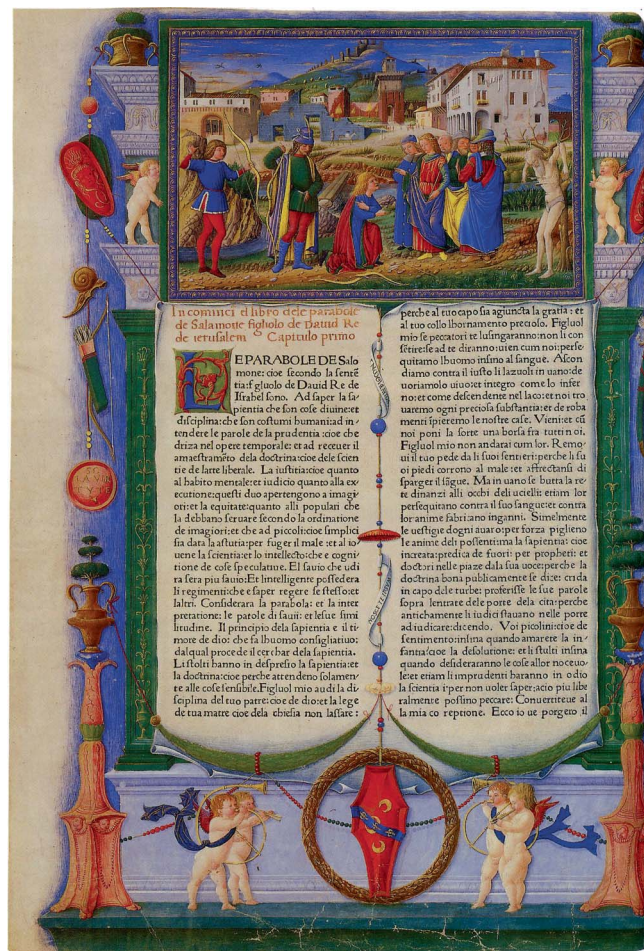 Incominci el libro dele parabole
de Salamone figholo de Dauid Re
de ierusalem Capitulo primo
EPARABOLE DE Salo
mone: cioe secondo la sentē
tia: fgluolo de Dauid Re de
Israhel sono. Ad saper la sa
pientia che son cose diuine: et
disciplina: che son costumi humani: ad in
tendere le parole de la prudentia: cioe che
driza nel opere temporale: et ad receuer il
amaestrameto dela doctrina: cioe dele scien
tie de larte liberale. La iustitia: cioe quanto
al habito mentale: et iudicio quanto alla ex
ecutione: questi duo apertengono a imagi
ori: et la equitate: quanto alli populari che
la debbano seruare secondo la ordinatione
de imagiori: et che ad piccoli: cioe simplici
sia data la astutia: per fuger il male: et al io
uene la scientia: et lo intellecto: che e cogni
tione de cose speculatiue. El sauio che udi
ra sera piu sauio: Et lintelligente possedera
li regimenti: che e saper regere se stesso: et
laltri. Considerara la parabola: et la inter
pretatione: le parole di sauii: et lesue simi
litudine. Il principio dela sapientia e il ti
more de dio: che fa lhuomo consigliatiuo:
dalqual procede il cerchar dela sapientia.
Li stolti hanno in despresio la sapientia: et
la doctrina: cioe perche attendeno solamen
te alle cose sensibile. Figluol mio audi la di
sciplina del tuo patre: cioe de dio: et la lege
de tua matre cioe dela chiesia non lassare:
perche al tuo capo sia agiuncta la gratia: et
al tuo collo lhornamento precioso. Figluol
mio se peccatori te lusingarano: non li con
sētire: se ad te diranno: uien cum noi: perse
quitamo lhuomo insino al sangue. Ascon
diamo contra il iusto li lazuoli in uano: de
uoriamolo uiuo: et integro come lo infer
no: et come descendente nel laco: et noi tro
uaremo ogni preciosa substantia: et de roba
menti spieremo le nostre case. Vieni: et cū
noi poni la sorte una borsa fra tutti noi.
Figluol mio non andarai cum lor. Remo
ui il tuo pede da li suoi sentieri: perche li su
oi piedi corrono al male: et affrectansi di
sparger il sāgue. Ma in uano se butta la re
te dinanzi alli occhi deli ucielli: etiam lor
persequitano contra il suo sangue: et contra
lor anime fabricano inganni. Simelmente
le uestigie dogni auaro: per forza piglieno
le anime deli possenti: ma la sapientia: cioe
increata: predica de fuori: per propheti: et
doctori nelle piaze da la sua uoce: perche la
doctrina bona publicamente se dice: crida
in capo dele turbe: proferisse le sue parole
sopra lentrate dele porte dela cita: perche
antichamente li iudici stauano nelle porte
ad iudicare: dicendo. Voi picolini: cioe de
sentimento: insina quando amarete la in
fantia: cioe la desolutione: et li stulti insina
quando desideraranno le cose allor noceuo
le: et etiam li imprudenti haranno in odio
la scientia: per non uoler saper: acio piu libe
ralmente possino peccare: Conuertiteue al
la mia correptione. Ecco io ue porgero il